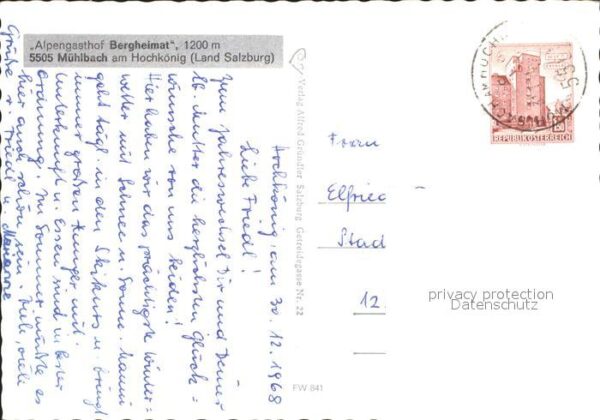 „Alpengasthof Bergheimat", 1200 m
5505 Mühlbach am Hochkönig (Land Salzburg)
Hochkönig, am 30.12.1968
Liebe Friedl!
Zum Jahreswechsel Dir und Deiner
lb. Mutter die herzlichsten Glück=
wünsche von uns beiden!
Hier haben wir das prächtigste Winter=
wetter mit Schnee u. Sonne. Manni
geht tägl. in den Skikurs u. bringt
immer großen Hunger mit.
Unterkunft u. Essen sind in bester
Ordnung. Im Sommer müßte es
hier auch schön sein. Viele, viele
Grüße v. Friedl u. Marianne
Verlag Alfred Gründler Salzburg Getreidegasse Nr. 22
FW 841
REPUBLIK ÖSTERREICH
Elfried
Stad
12.
privacy protection
Datenschutz